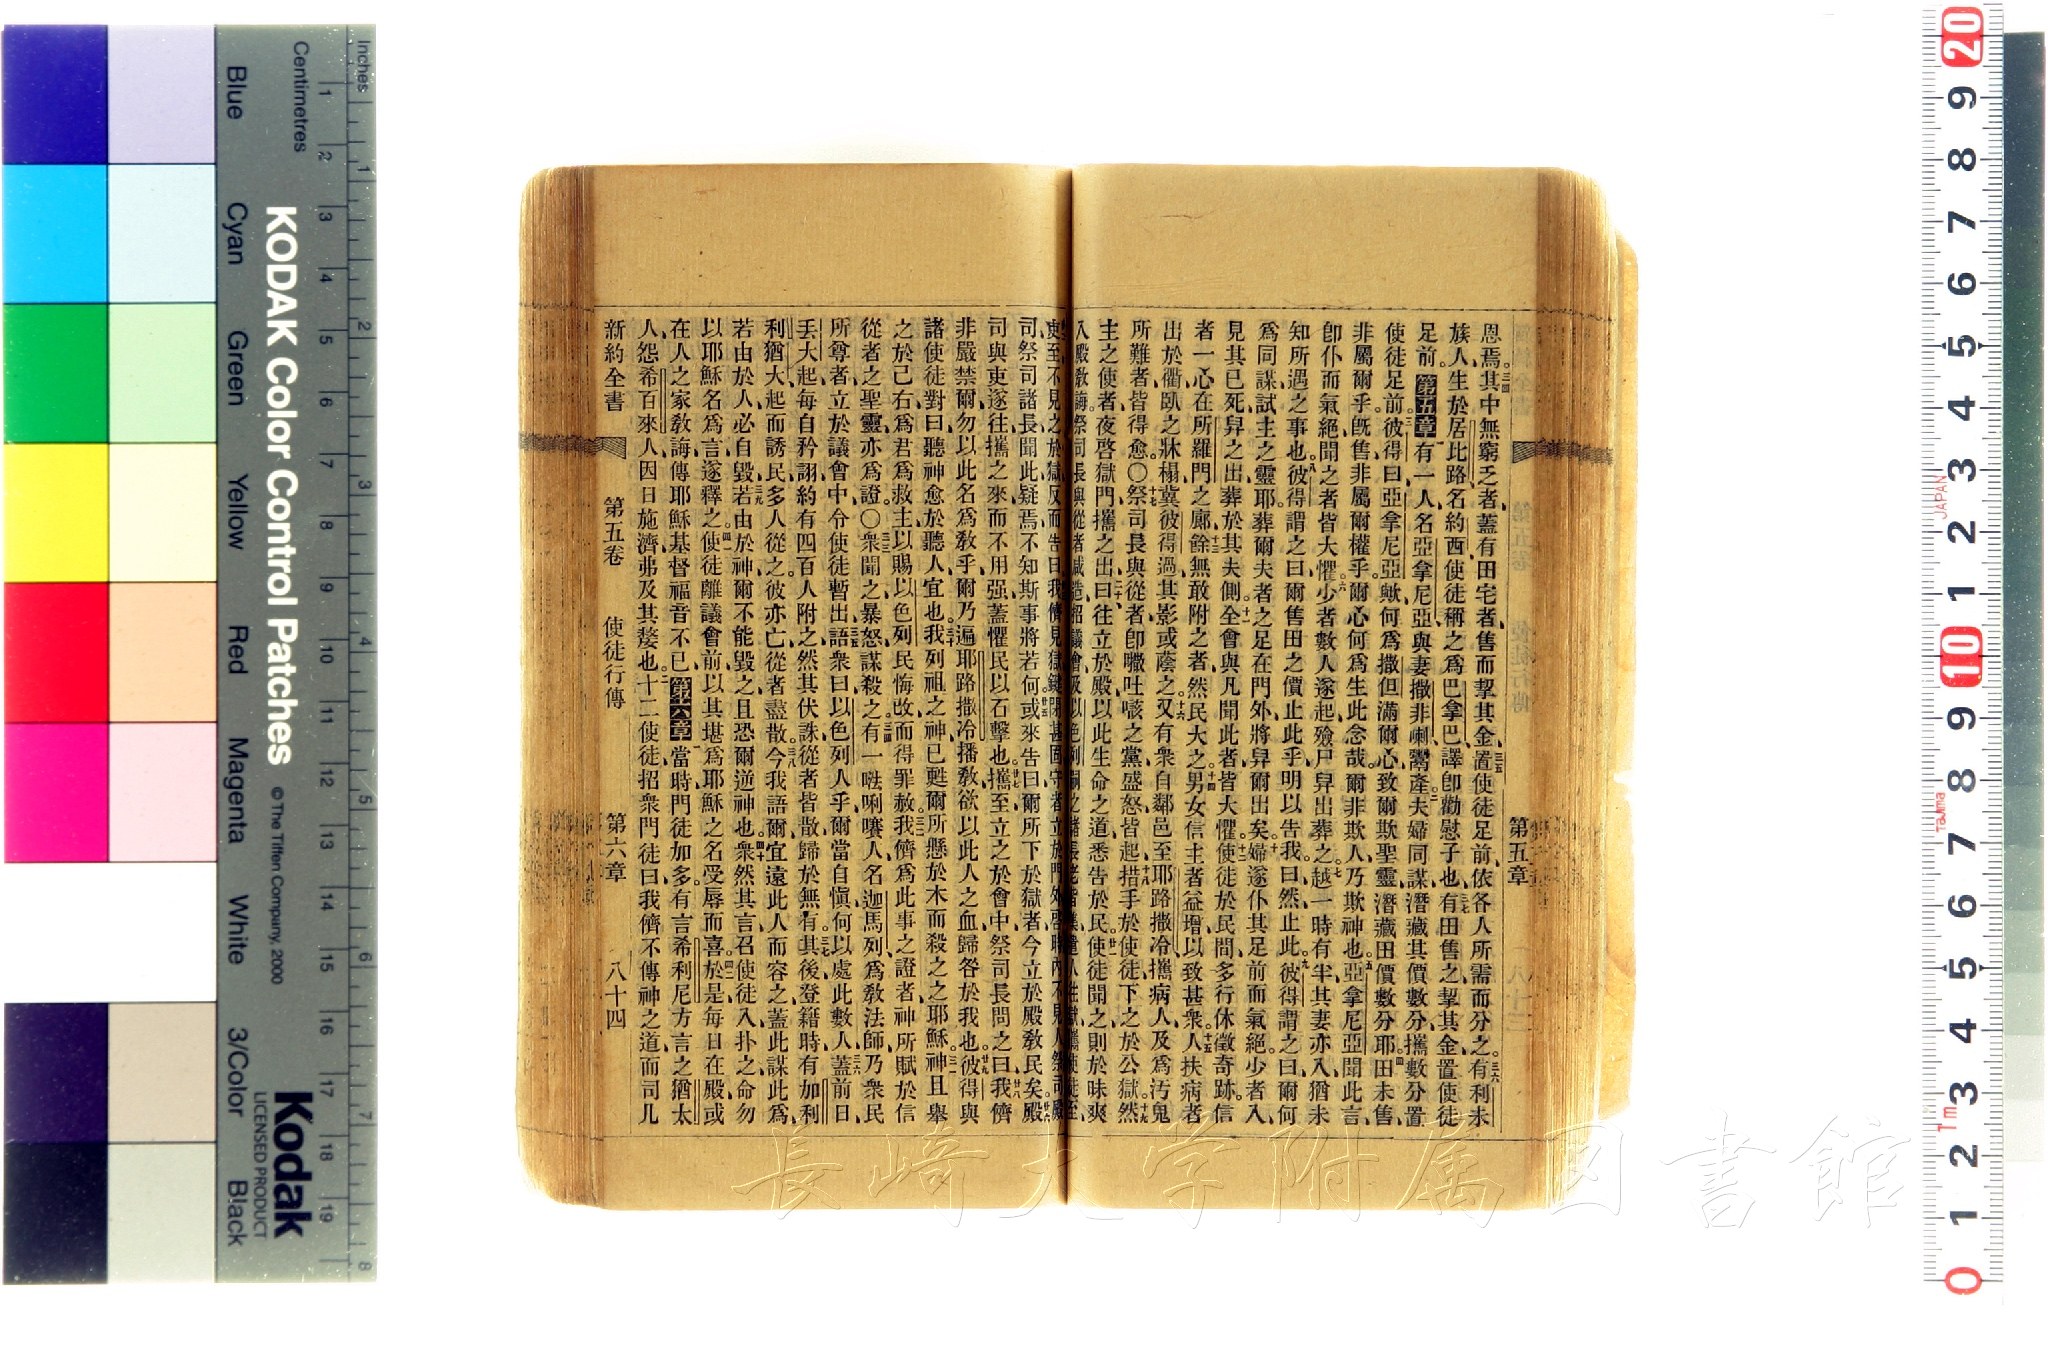 第五章
恩焉其中無窮乏者蓋有田宅者售而挈其金置使徒足前依各人所需而分之有利未
族人生於居比路名約西使徒稱之爲巴拿巴譯卽勸慰子也有田售之挈其金置使徒
足前 第五章 有一人名亞拿尼亞與妻撒非喇鬻產夫婦同謀潛藏其價數分攜數分置
使徒足前彼得曰亞拿尼亞歟何爲撒但滿爾心致爾欺聖靈潛藏田價數分耶田未售
非屬爾乎旣售非屬爾權乎爾心何爲生此念哉爾非欺人乃欺神也亞拿尼亞聞此言
卽仆而氣絕聞之者皆大懼少者數人遂起殮尸舁出葬之越一時有半其妻亦入猶未
知所遇之事也彼得謂之曰爾售田之價止此乎明以告我曰然止此彼得謂之曰爾何
爲同謀試主之靈耶葬爾夫者之足在門外將舁爾出矣婦遂仆其足前而氣絕少者入
見其已死舁之出葬於其夫側全會與凡聞此者皆大懼使徒於民間多行休徵奇跡信
者一心在所羅門之廊餘無敢附之者然民大之男女信主者益增以致甚衆人扶病者
出於衢臥之牀榻冀彼得過其影或蔭之又有衆自鄰邑至耶路撒冷攜病人及爲污鬼
所難者皆得愈〇祭司長與從者卽𠵽吐嗄之黨盛怒皆起措手於使徒下之於公獄然
主之使者夜啓獄門攜之出曰往立於殿以此生命之道悉告於民使徒聞之則於昧爽
入殿敎誨祭司長與從者咸造招議會及以色列嗣之諸長老皆集遣人往獄攜使徒至
吏至不見之於獄反而告曰我儕見獄鍵閉甚固守者立於門外啓時內不見人祭司殿
司祭司諸長聞此疑焉不知斯事將若何或來告曰爾所下於獄者今立於殿敎民矣殿
司與吏遂往攜之來而不用强蓋懼民以石擊也攜至立之於會中祭司長問之曰我儕
非嚴禁爾勿以此名爲敎乎爾乃遍耶路撒冷播敎欲以此人之血歸咎於我也彼得與
諸使徒對曰聽神愈於聽人宜也我列祖之神已甦爾所懸於木而殺之之耶穌神且舉
之於己右爲君爲救主以賜以色列民悔改而得罪赦我儕爲此事之證者神所賦於信
從者之聖靈亦爲證〇衆聞之暴怒謀殺之有一㗲唎㘔人名迦馬列爲敎法師乃衆民
所尊者立於議會中令使徒暫出語衆曰以色列人乎爾當自愼何以處此數人蓋前日
丟大起每自矜詡約有四百人附之然其伏誅從者皆散歸於無有其後登籍時有加利
利猶大起而誘民多人從之彼亦亡從者盡散今我語爾宜遠此人而容之蓋此謀此爲
若由於人必自毀若由於神爾不能毀之且恐爾逆神也衆然其言召使徒入扑之命勿
以耶穌名爲言遂釋之使徒離議會前以其堪爲耶穌之名受辱而喜於是每日在殿或
在人之家敎誨傳耶穌基督福音不已 第六章 當時門徒加多有言希利尼方言之猶太
人怨希百來人因日施濟弗及其嫠也十二使徒招衆門徒曰我儕不傳神之道而司几
新約全書 第五卷 使徒行傳 第六章 八十四
KODAK Color Control Patches
© The Tiffen Company, 2000
Kodak
LICENSED PRODUCT
Inches
Centimetres
Blue
Cyan
Green
Yellow
Red
Magenta
White
3/Color
Black
JAPAN
Tajima
長崎大学附属図書館